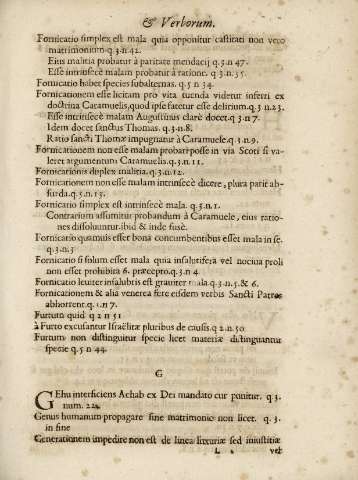 & Verborum.
Fornicatio simplex est mala quia opponitur castitati non vero
matrimonium q.3.n.42.
Eius malitia probatur à paritate mendacij q.3 n.47.
Esse intrinsecè malam probatur à ratione. q 3. n.35.
Fornicatio habet species subalternas. q.5 n 34.
Fornicationem esse licitam pro vita tuenda videtur inferri ex
doctrina Caramuelis, quod ipse fatetur esse delirium. q.3 n.23.
Esse intrinsecè malam Augustinus clarè docet. q.3 n.7
Idem docet sanctus Thomas. q.3.n.8.
Ratio sancti Thomæ impugnatur à Caramuele. q.3.n.9.
Fornicationem non esse malam probari posse in via Scoti si va-
leret argumentum Caramuelis. q.3.n.11.
Fornicationis duplex malitia. q.3.n.12.
Fornicationem non esse malam intrinsecè dicere, plura parit ab-
surda. q.3.n.13.
Fornicatio simplex est intrinsecè mala. q.3.n.1.
Contrarium assumitur probandum à Caramuele, eius ratio-
nes dissoluuntur. ibid & inde fusè.
Fornicatio quamuis esset bona concumbentibus esset mala in se.
q.3.n.3
Fornicatio si solum esset mala quia insalutifera vel nociua proli
non esset prohibita 6. præcepto. q.3 n.4
Fornicatio leuiter insalubris est grauiter mala. q.3.n.5. & 6.
Fornicationem & alia venerea fere eisdem verbis Sancti Patres
abhorrent. q. n.7.
Furtum quid q 2 n 51
à Furto excusantur Israëlitæ pluribus de causis. q.2.n.50
Furtum non distinguitur specie licet materiæ distinguantur
specie q.5 n 44.
G
GEhu interficiens Achab ex Dei mandato cur punitur. q.3.
num. 22.
Genus humanum propagare sine matrimonio non licet. q. 3.
in fine
Generationem impedire non est de linea luxuriæ sed iniustitiæ
L
vel